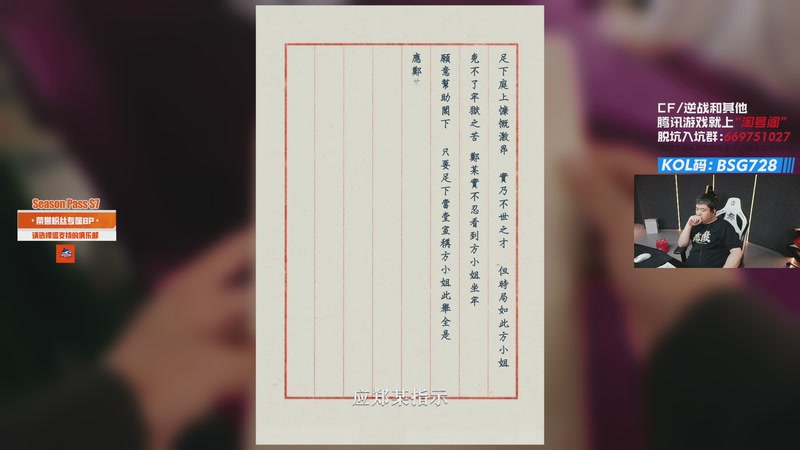 足下庭上慷慨激昂 實乃不世之才 但時局如此方小姐
免不了牢獄之苦 鄭某實不忍看到方小姐坐牢
願意幫助閣下 只要足下當堂宣稱方小姐此舉全是
應鄭
应郑某指示
CF/逆战和其他
腾讯游戏就上"淘号阁"
脱坑入坑群:669751027
KOL码:BSG728
Season Pass S7
荣誉粉丝专属BP
请选择您支持的俱乐部